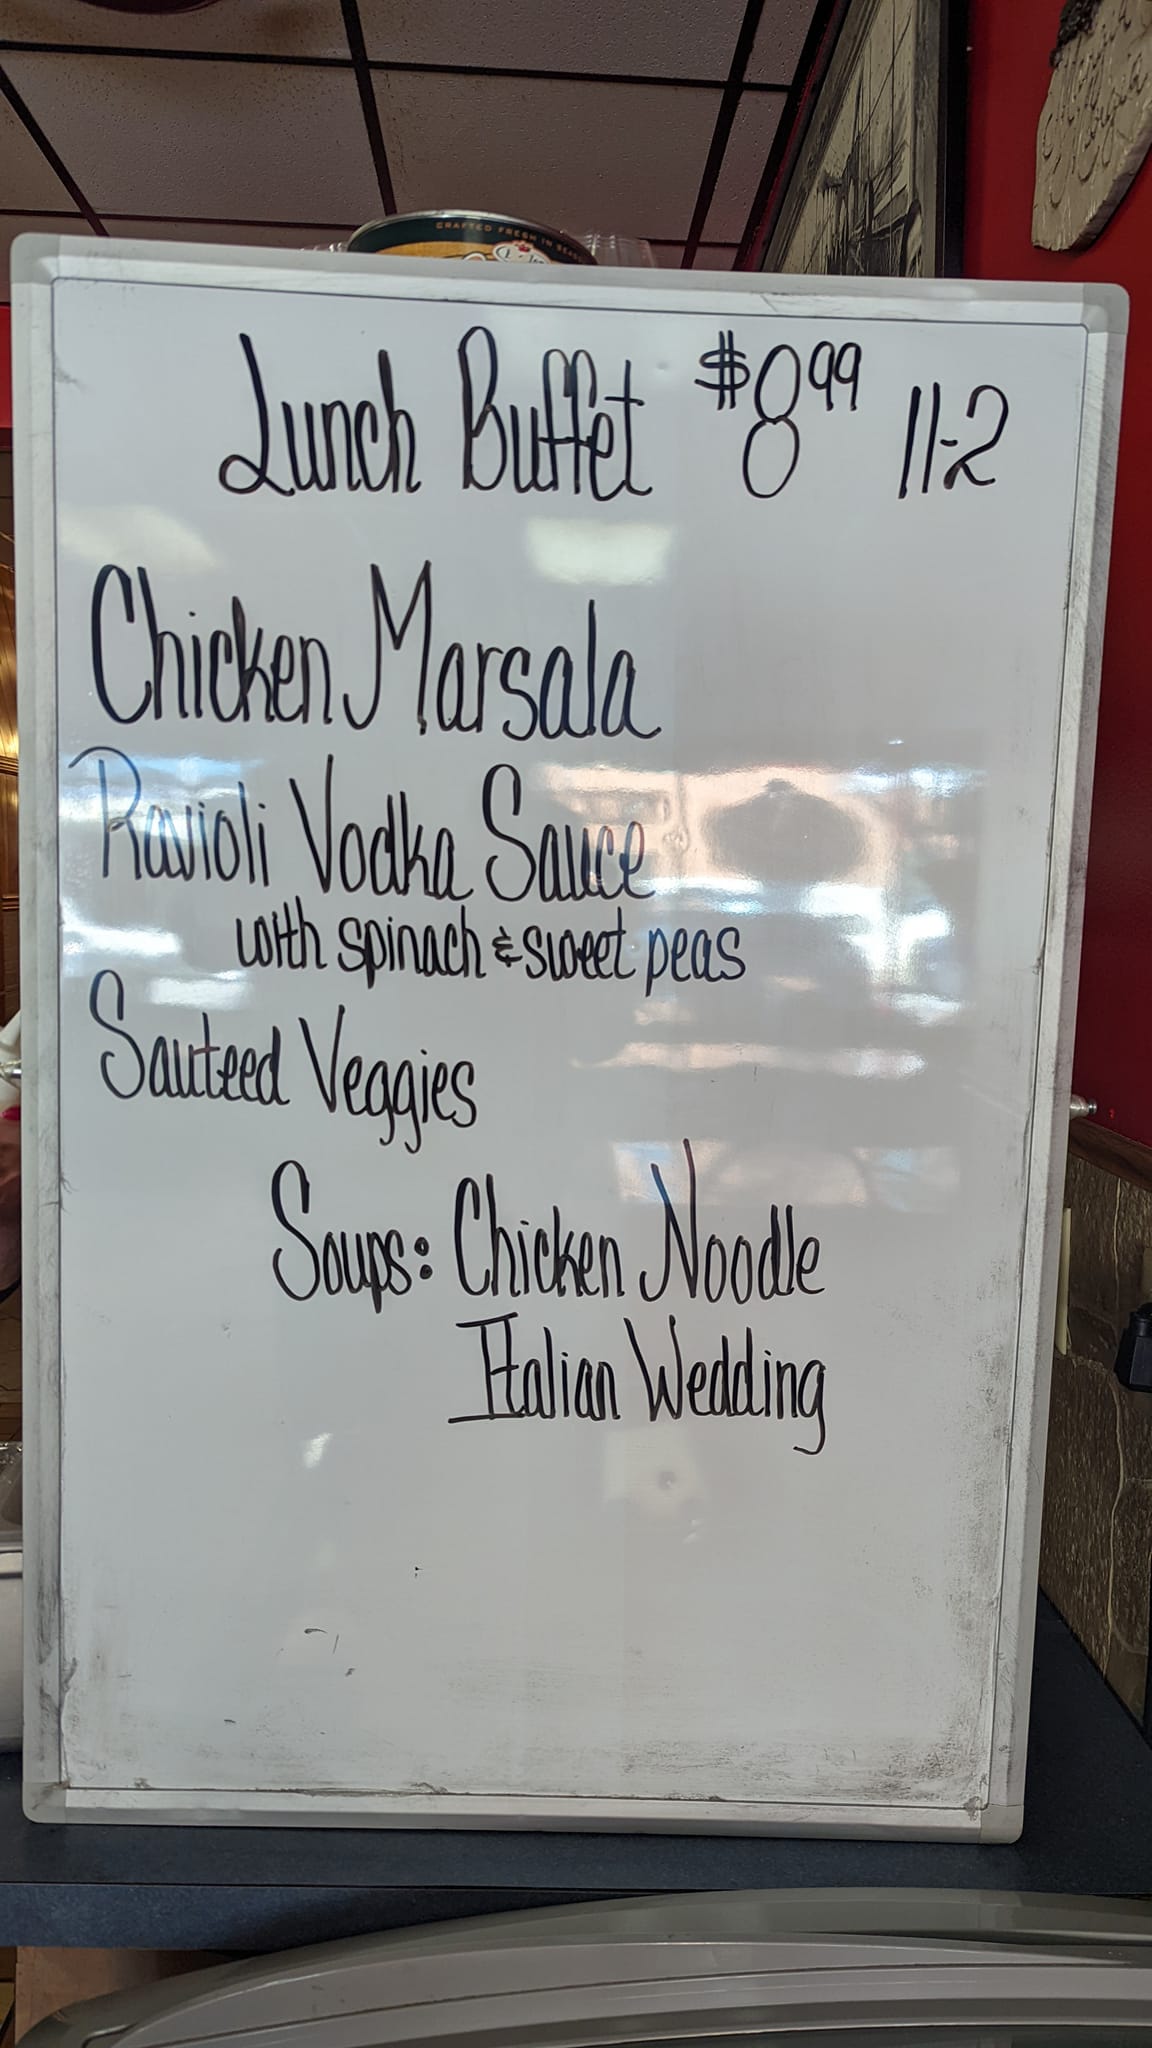 CRAFTED FRESH IN
Lunch Buffet $8.99 11-2
Chicken Marsala
Ravioli Vodka Sauce
with spinach & sweet peas
Sauteed Veggies
Soups: Chicken Noodle
Italian Wedding